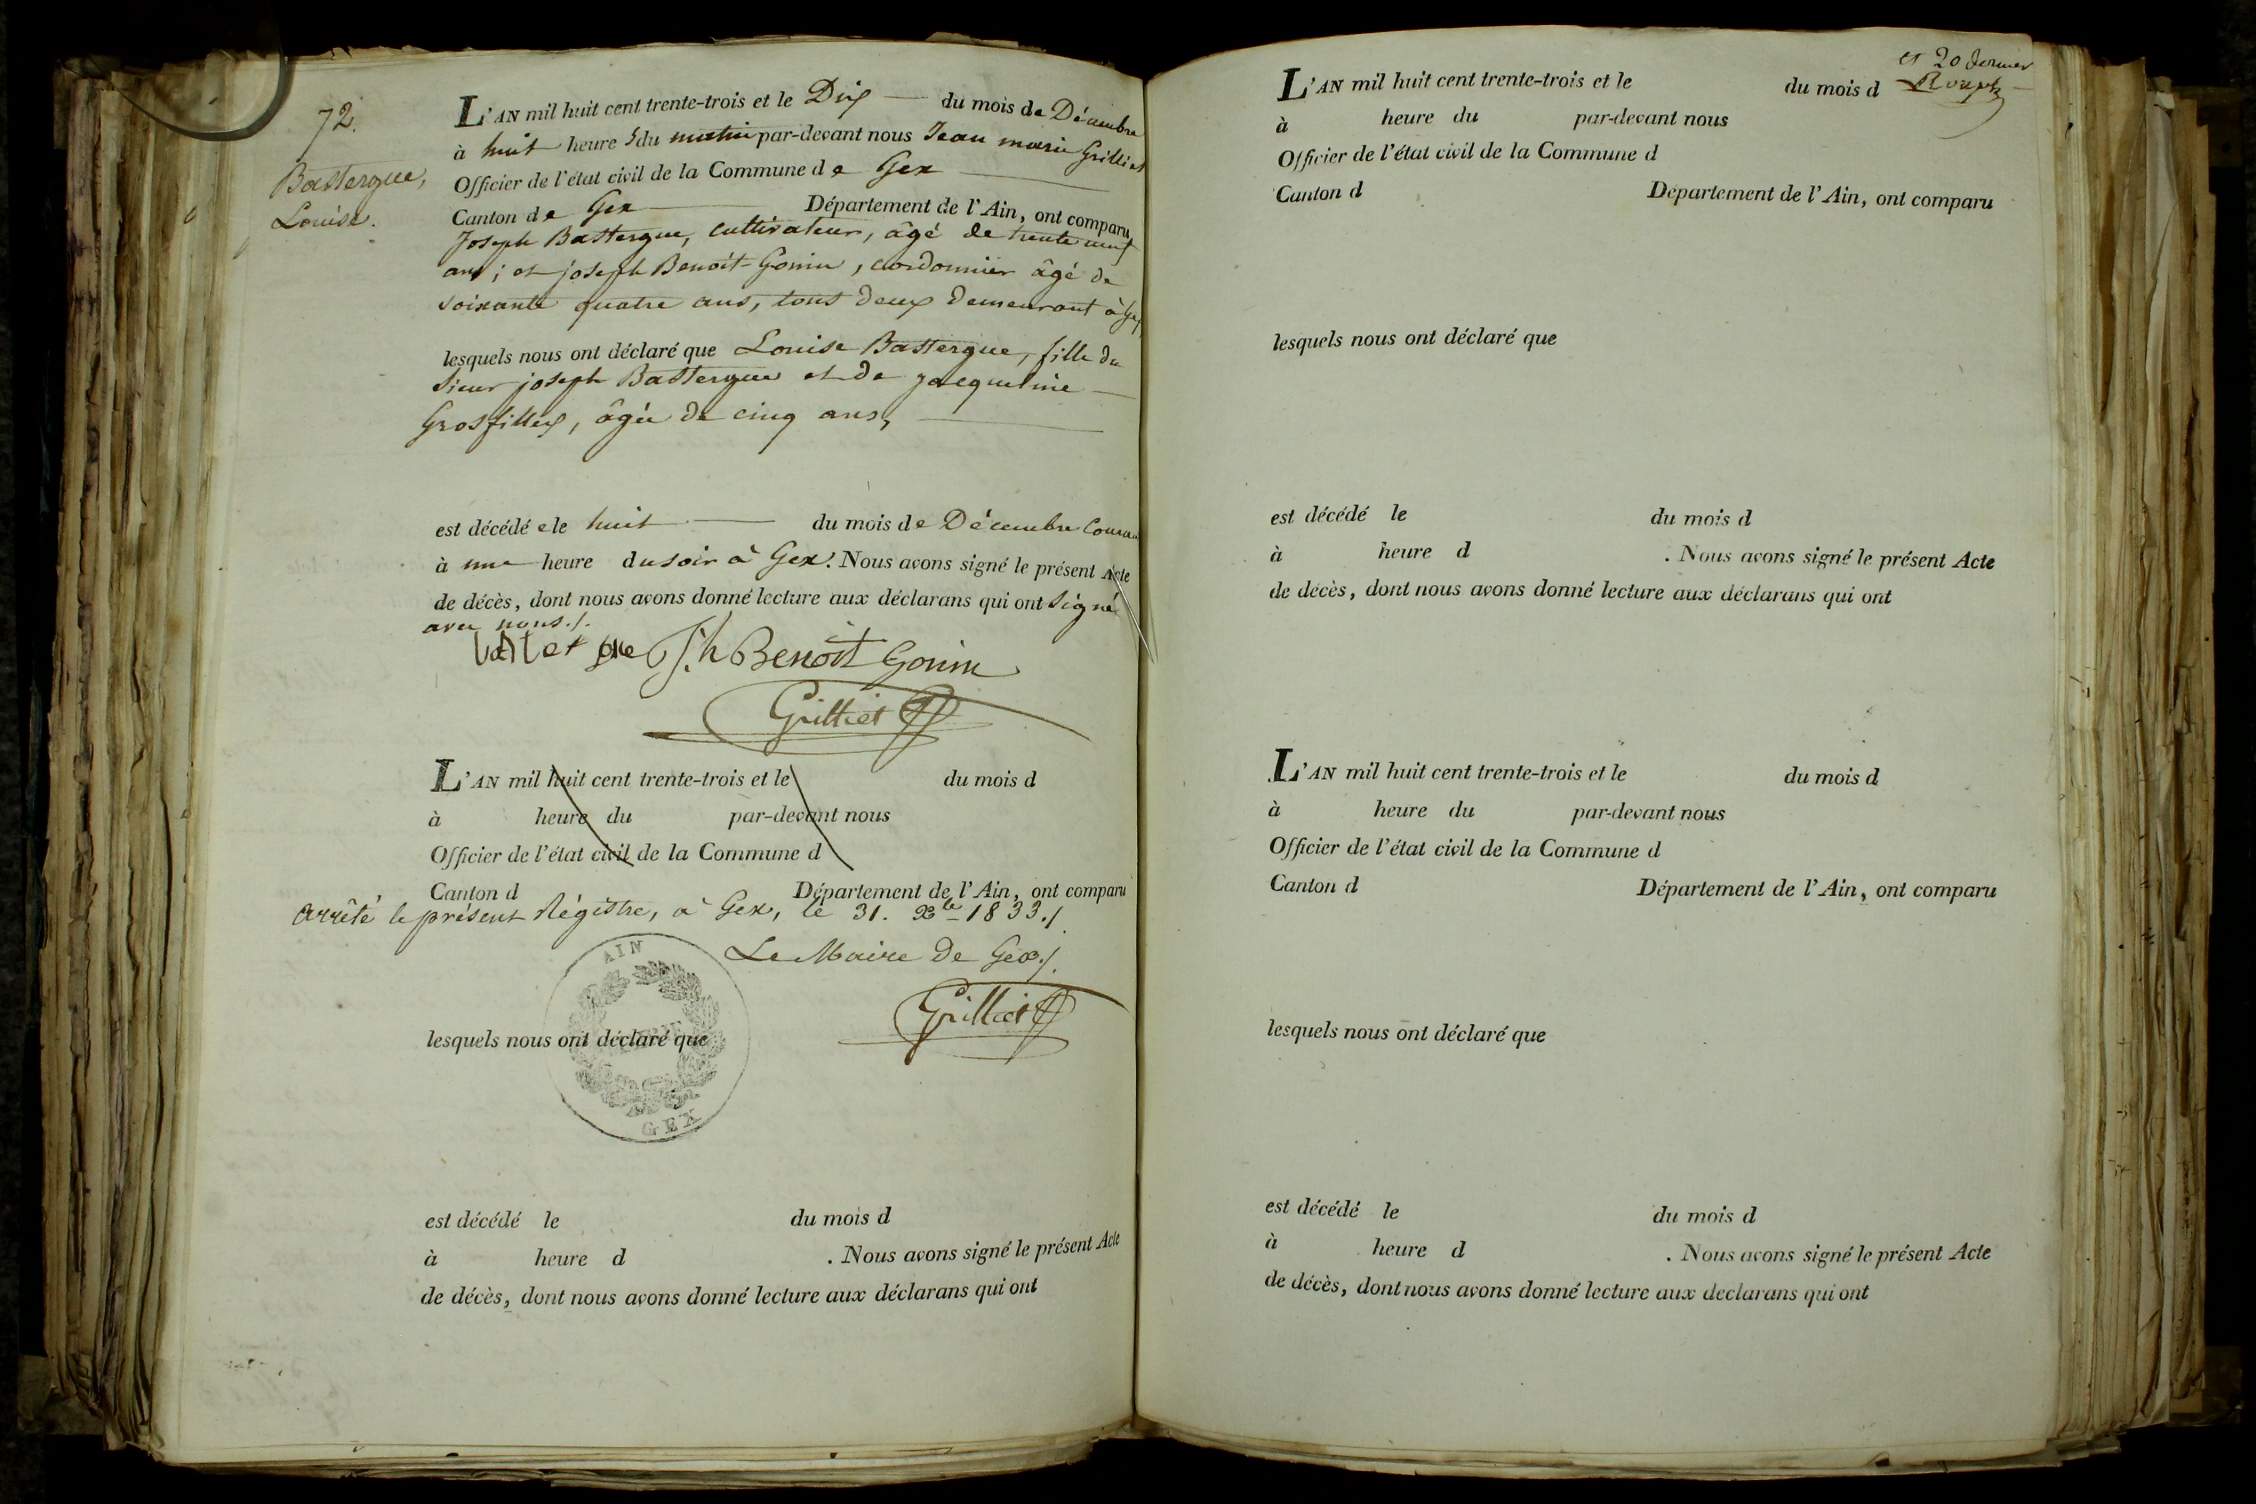 72.
Bastergue,
Louise.
L'AN mil huit cent trente-trois et le Dix du mois de Décembre
à huit heures du matin par-devant nous Jean marie Grilliet
Officier de l'état civil de la Commune de Gex
Canton de Gex Département de l'Ain, ont comparu
Joseph Bastergue, cultivateur, âgé de trente neuf
ans; et joseph Benoit-Gonin, cordonnier âgé de
soixante quatre ans, tous deux demeurant à Gex,
lesquels nous ont déclaré que Louise Bastergue, fille du
Sieur joseph Bastergue et de jacqueline
Grosfilley, âgée de cinq ans,
est décédée le huit du mois de Décembre Courant
à une heure du soir à Gex. Nous avons signé le présent Acte
de décès, dont nous avons donné lecture aux déclarans qui ont signé
avec nous./.
J.h Benoit Gonin
Grilliet
L'AN mil huit cent trente-trois et le du mois d
à heure du par-devant nous
Officier de l'état civil de la Commune d
Canton d Département de l'Ain, ont comparu
Arrêté le présent Régistre, à Gex, le 31. Xbre 1833./.
Le Maire de Gex./.
Grilliet
AIN
GEX
lesquels nous ont déclaré que
est décédé le du mois d
à heure d . Nous avons signé le présent Acte
de décès, dont nous avons donné lecture aux déclarans qui ont
et 20 dernier
L'AN mil huit cent trente-trois et le du mois d
à heure du par-devant nous
Officier de l'état civil de la Commune d
Canton d Département de l'Ain, ont comparu
lesquels nous ont déclaré que
est décédé le du mois d
à heure d . Nous avons signé le présent Acte
de décès, dont nous avons donné lecture aux déclarans qui ont
L'AN mil huit cent trente-trois et le du mois d
à heure du par-devant nous
Officier de l'état civil de la Commune d
Canton d Département de l'Ain, ont comparu
lesquels nous ont déclaré que
est décédé le du mois d
à heure d . Nous avons signé le présent Acte
de décès, dont nous avons donné lecture aux declarans qui ont